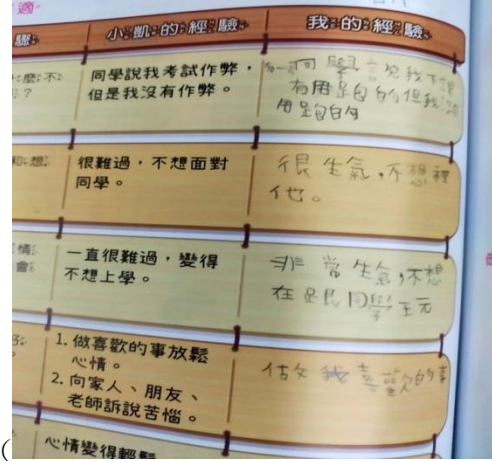 適
驟 小凱的經驗 我的經驗
麼不
？
同學說我考試作弊，
但是我沒有作弊。
同學說我下課
有用跑的但我沒
用跑的
和想
很難過，不想面對
同學。
很生氣，不想裡
他。
情
會
一直很難過，變得
不想上學。
非常生氣，不想
在跟同學玩
1. 做喜歡的事放鬆
心情。
2. 向家人、朋友、
老師訴說苦惱。
做我喜歡的事
心情變得輕鬆